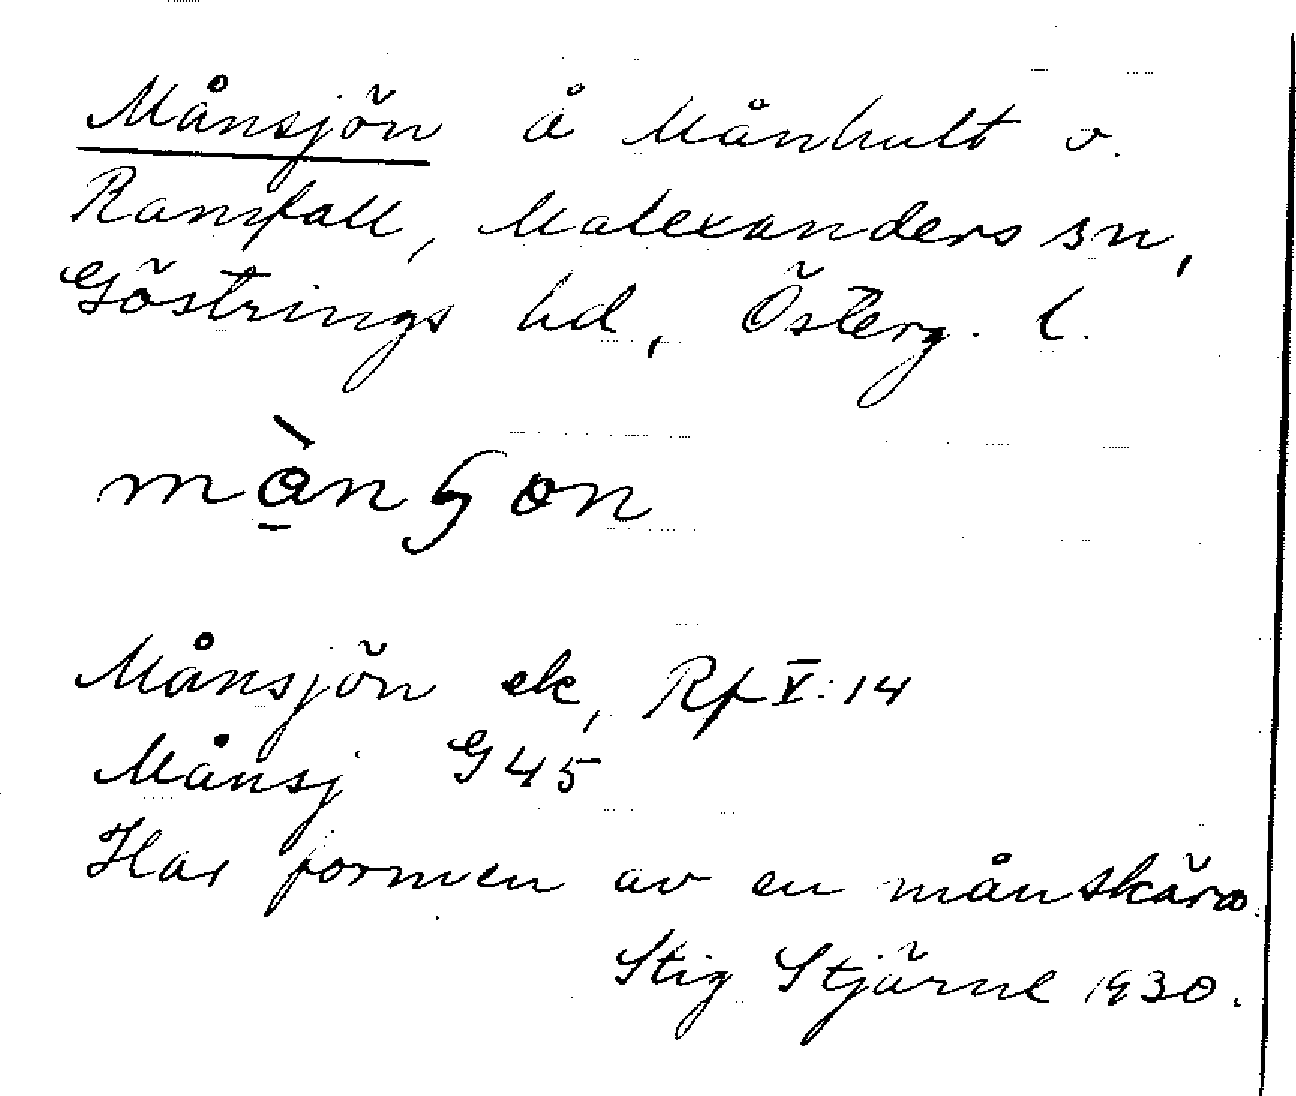 Månsjön å Månhult o.
Ramfall, Malexanders sn,
Göstrings hd, Österg. l.
Månsjön ek, Rf V:14
Månsj G45
Har formen av en månskära.
Stig Stjärne 1930.